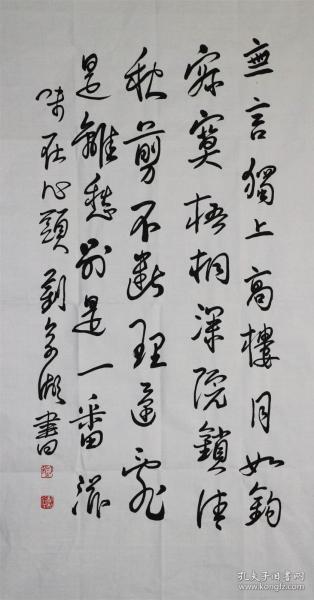 無言獨上高樓月如鉤
寂寞梧桐深院鎖清
秋剪不斷理還亂
是離愁別是一番滋
味在心頭 劉書
孔夫子旧书网
www.kongfz.com